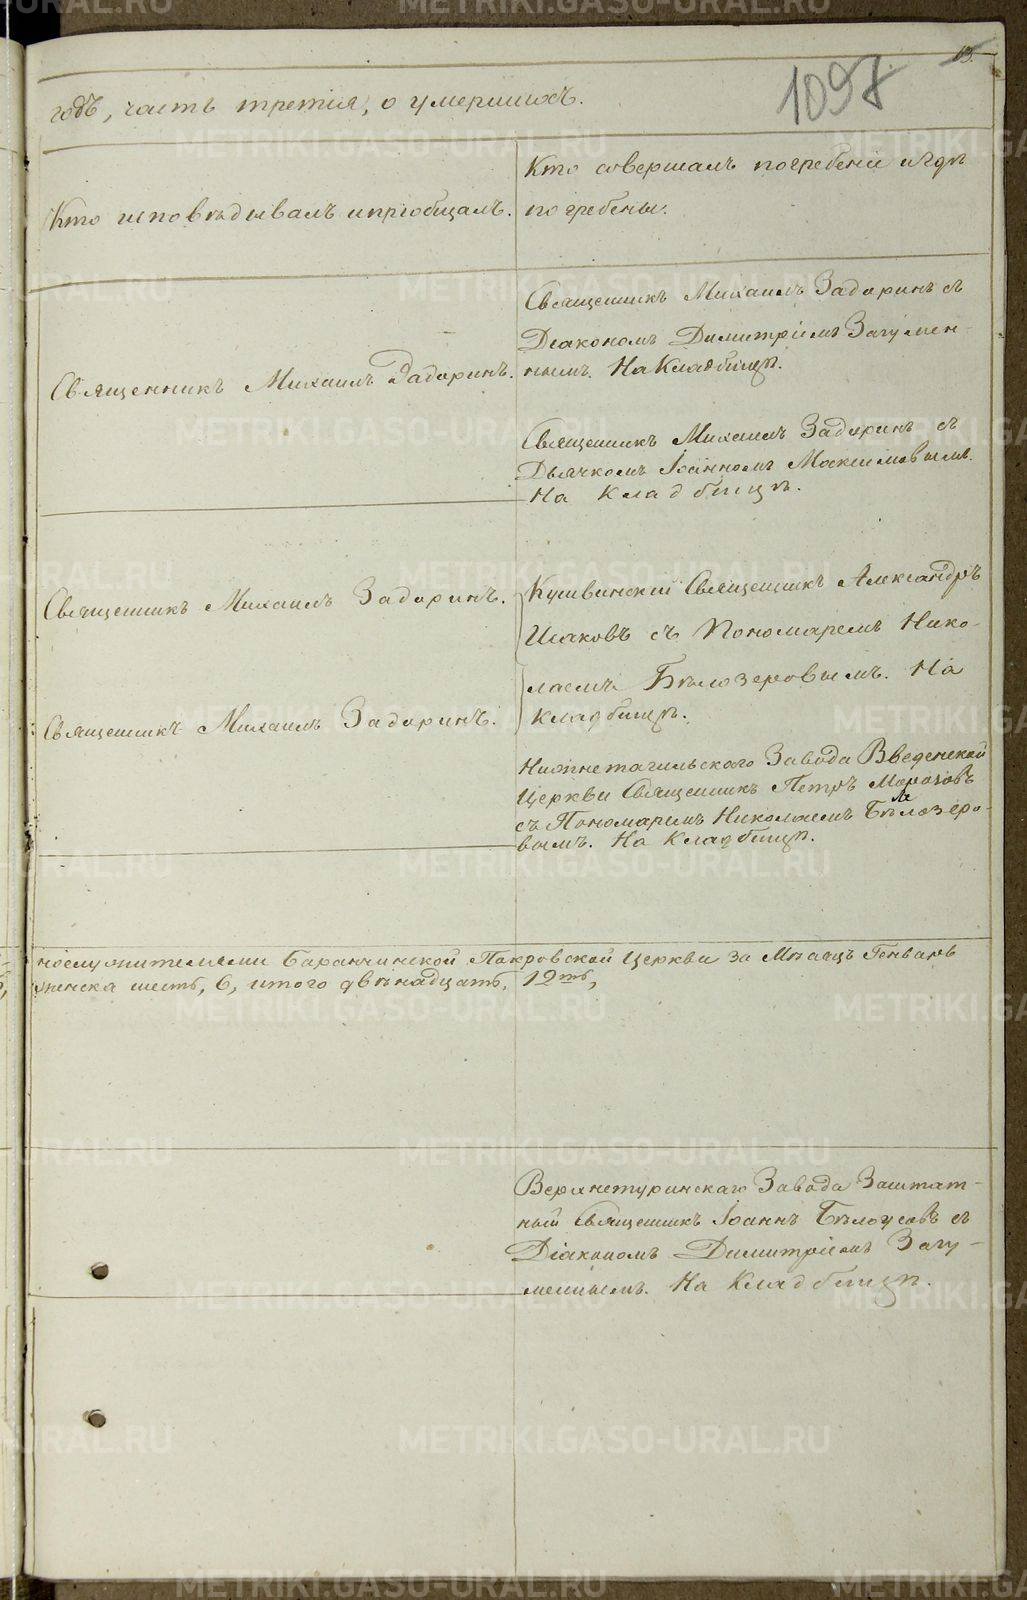 13.
1097
годъ, часть третія, о умершихъ.
Кто исповѣдывалъ и пріобщалъ.
Кто совершалъ погребеніе и гдѣ
погребены.
Священникъ Михаилъ Задоринъ.
Священникъ Михаилъ Задоринъ съ
Діакономъ Димитріемъ Загумен-
нымъ. На Кладбищѣ.
Священникъ Михаилъ Задоринъ съ
Дьячкомъ Іоанномъ Максимовымъ.
На Кладбищѣ.
Священникъ Михаилъ Задоринъ.
Священникъ Михаилъ Задоринъ.
Кушвинскій Священникъ Александръ
Исаковъ съ Пономаремъ Нико-
лаемъ Бѣлозеровымъ. На
кладбищѣ.
Нижнетагильскаго Завода Введенской
Церкви Священникъ Петръ Морозовъ
съ Пономаремъ Николаемъ Бѣлозеро-
вымъ. На Кладбищѣ.
нослужителями Баранчинской Покровской Церкви за Мѣсяцъ Генварь
женска шесть, 6, итого двѣнадцать, 12ть,
Верхнетуринскаго Завода Заштат-
ный Священникъ Іоаннъ Бѣлоусовъ съ
Діакономъ Димитріемъ Загу-
меннымъ. На Кладбищѣ.
METRIKI.GASO-URAL.RU